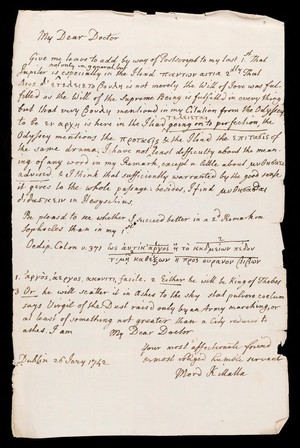 My Dear Doctor
Give me leave to add by way of Postscript to my last 1st That
not only in general but
Jupiter is especially in the Iliad παντων αιτια 2dly That
Διος δ' ετελειετο βουλη is not merely the Will of Jove was ful-
filled as the Will of the Supreme Being is fulfilled in every thing
but that very Βουλη mentioned in my Citation from the Odyssey
τελειεται
to be εν αρχη is here in the Iliad going on to perfection the
Odyssey mentions the προτασις & the Iliad the επιτασις of
the same drama; I have not least difficulty about the mean-
ing of any word in my Remark, except a little about
advised & I think that sufficiently warranted by the good sense
it gives to the whole passage: besides, I find
in Hesychius.
Be pleased to see whether I succeed better in a 2d Remark on
Sophocles than in my 1st
Oedip. Colon v. 373
ἢ πρὸς οὐρανὸν
facile. 2 Either he will be King of Thebes
3 Or he will scatter it in Ashes to the sky
says Virgil of the Dust raised only by an Army marching, or
at least of something not greater than a City reduced to
ashes. I am My Dear Doctor
your most affectionate friend
& most obliged humble servant
Dublin 26 Janry 1742
Mord Killalla